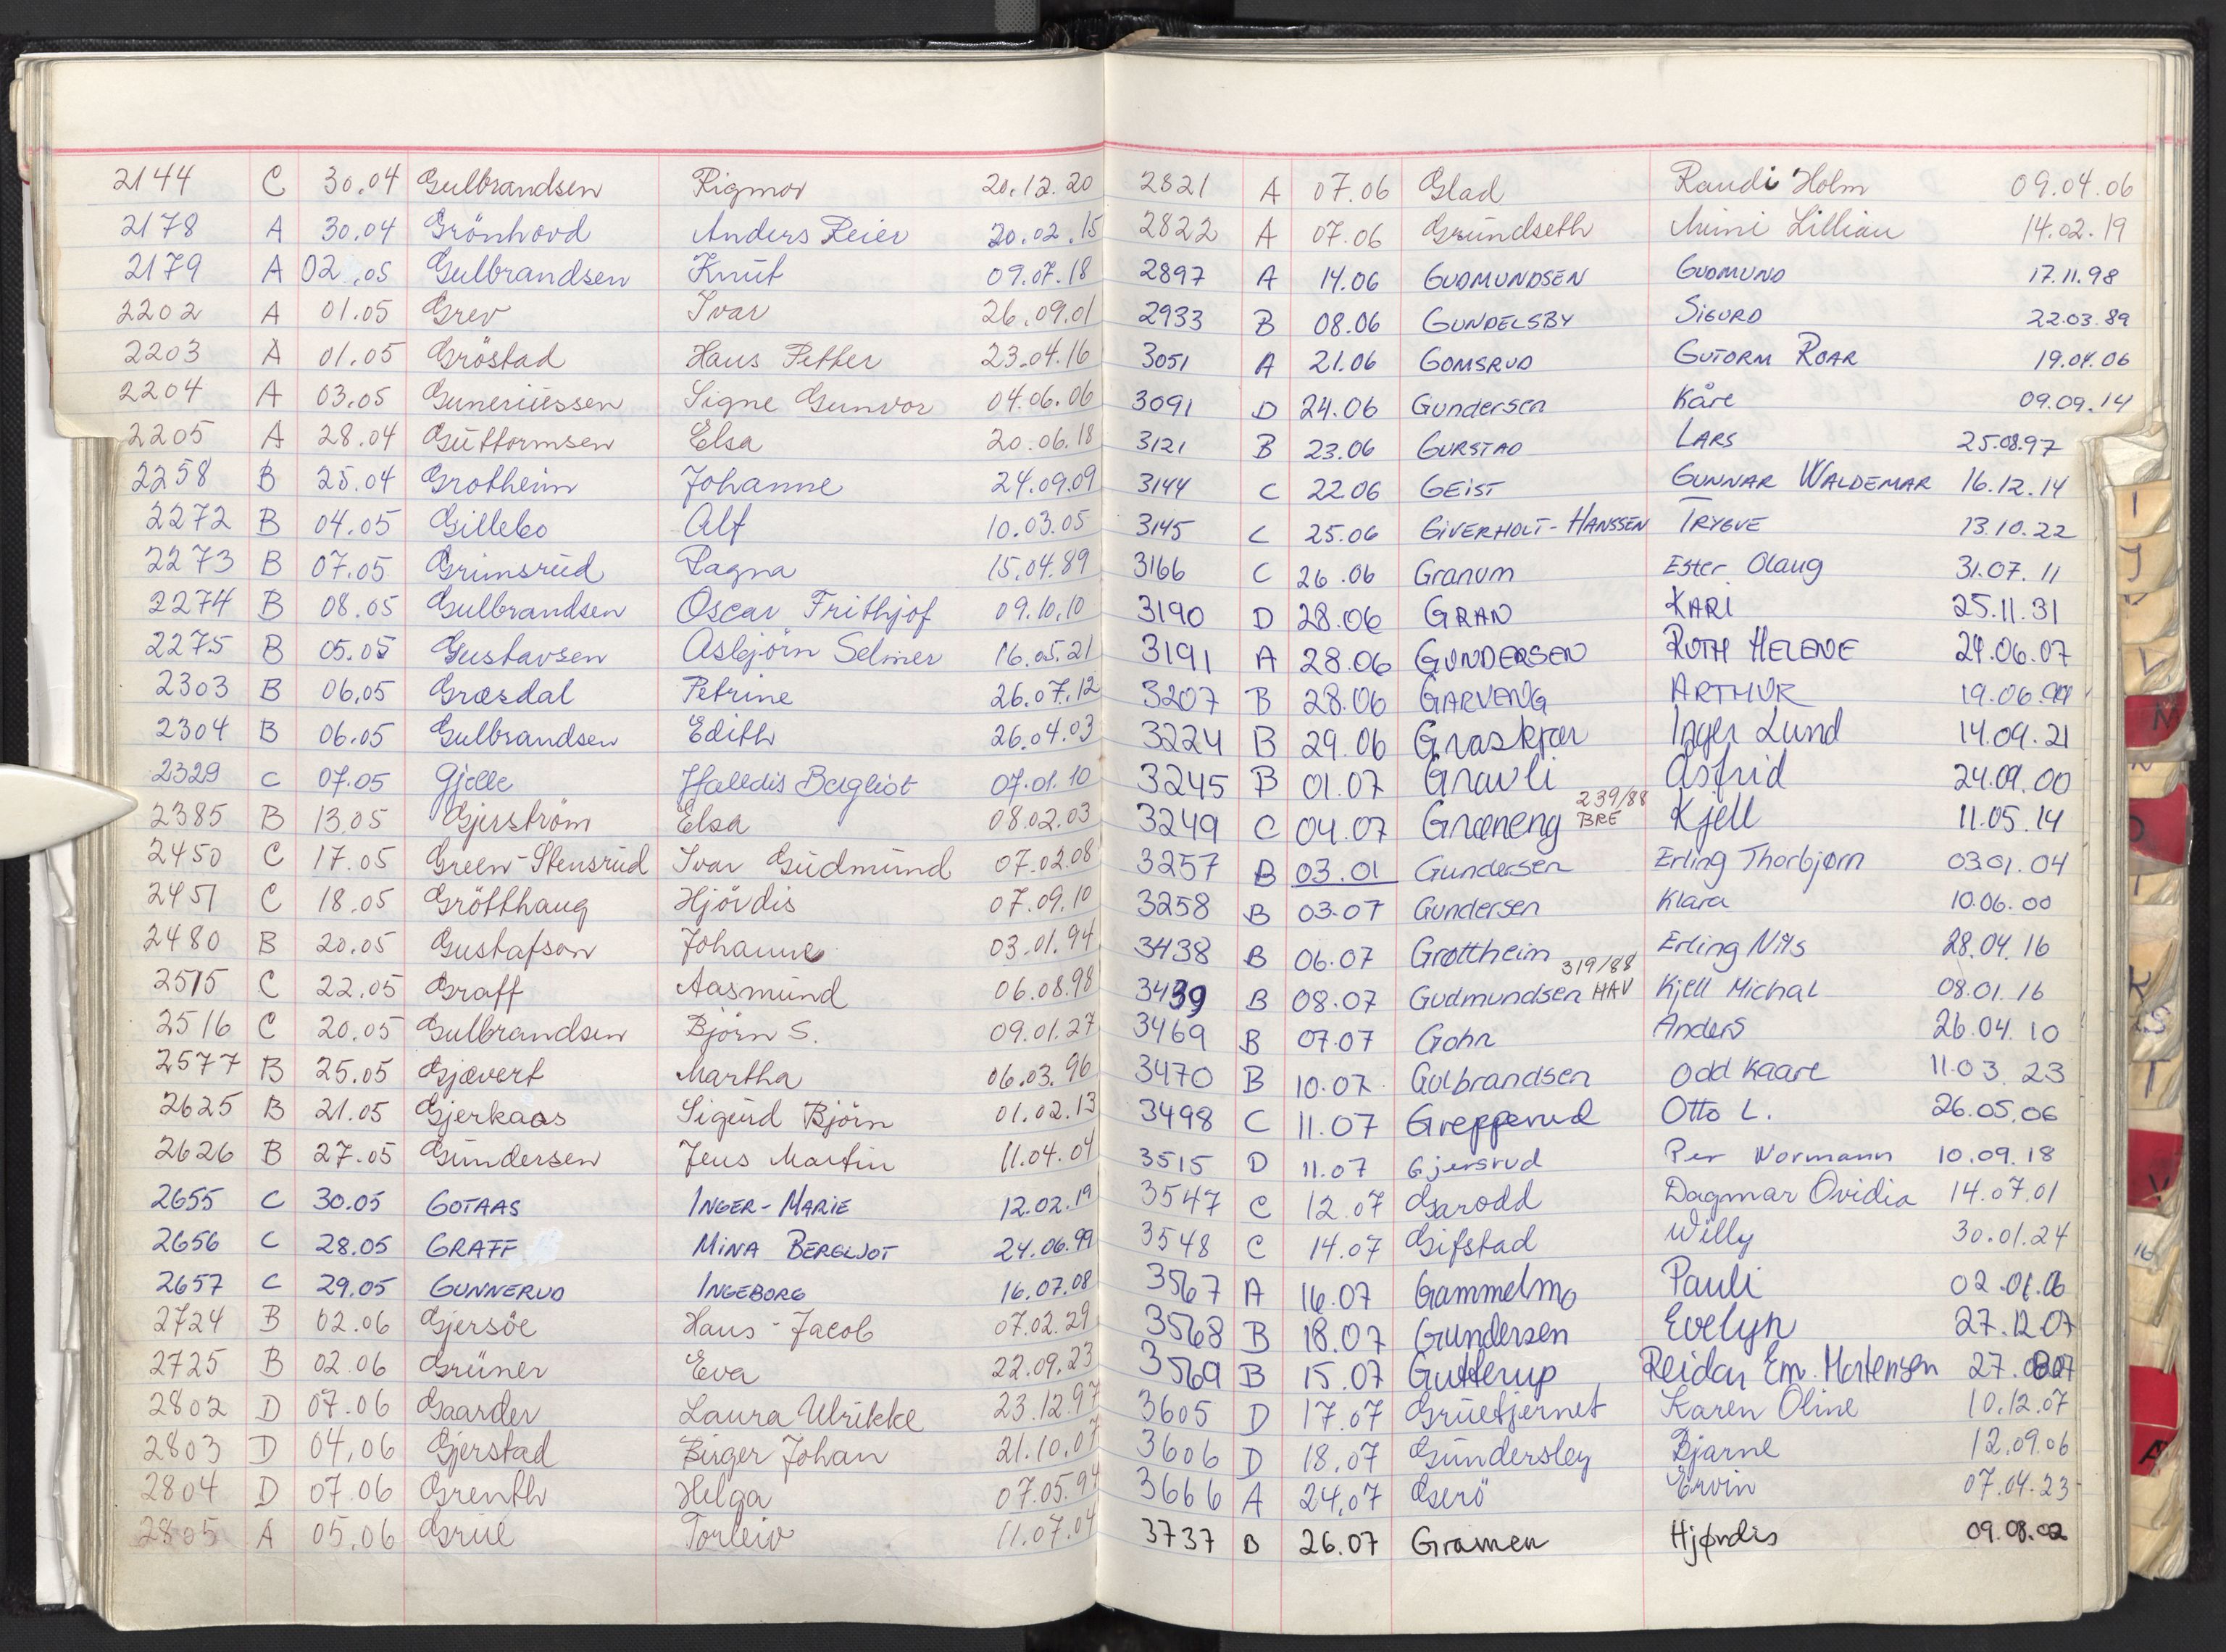 2144 C 30.04 Gulbrandsen Rigmor 20.12.20
2178 A 30.04 Grönhovd Anders Reier 20.02.15
2179 A 02.05 Gulbrandsen Knut 09.07.18
2202 A 01.05 Grev Ivar 26.09.01
2203 A 01.05 Gröstad Hans Petter 23.04.16
2204 A 03.05 Guneriussen Signe Gunvor 04.06.06
2205 A 28.04 Guttormsen Elsa 20.06.18
2258 B 25.04 Grotheim Johanne 24.09.09
2272 B 04.05 Gillebo Alf 10.03.05
2273 B 07.05 Grimsrud Ragna 15.04.89
2274 B 08.05 Gulbrandsen Oscar Frithjof 09.10.10
2275 B 05.05 Gustavsen Asbjörn Selmer 16.05.21
2303 B 06.05 Græsdal Petrine 26.07.12
2304 B 06.05 Gulbrandsen Edith 26.04.03
2329 C 07.05 Gjelle Halldis Bergliot 07.01.10
2385 B 13.05 Gjerström Elsa 08.02.03
2450 C 17.05 Green-Stensrud Ivar Gudmund 07.02.08
2451 C 18.05 Grötthaug Hjördis 07.09.10
2480 B 20.05 Gustafson Johanne 03.01.94
2515 C 22.05 Graff Aasmund 06.08.98
2516 C 20.05 Gulbrandsen Björn S. 09.01.27
2577 B 25.05 Gjævert Martha 06.03.96
2625 B 21.05 Gjerkaas Sigurd Björn 01.02.13
2626 B 27.05 Gundersen Jens Martin 11.04.04
2655 C 30.05 GOTAAS INGER-MARIE 12.02.19
2656 C 28.05 GRAFF MINA BERGLJOT 24.06.99
2657 C 29.05 GUNNERUD INGEBORG 16.07.08
2724 B 02.06 Gjersöe Hans-Jacob 07.02.29
2725 B 02.06 Grüner Eva 22.09.23
2802 D 07.06 Gaarder Laura Ulrikke 23.12.97
2803 D 04.06 Gjerstad Birger Johan 21.10.07
2804 D 07.06 Grenth Helga 07.05.94
2805 A 05.06 Grue Torleiv 11.07.04
2821 A 07.06 Glad Randi Holm 09.04.06
2822 A 07.06 Grundseth Mimi Lillian 14.02.19
2897 A 14.06 GUDMUNDSEN GUDMUND 17.11.98
2933 B 08.06 GUNDELSBY SIGURD 22.03.89
3051 A 21.06 GOMSRUD GUTORM ROAR 19.04.06
3091 D 24.06 Gundersen Kåre 09.09.14
3121 B 23.06 GURSTAD LARS 25.08.97
3144 C 22.06 GEIST GUNNAR WALDEMAR 16.12.14
3145 C 25.06 GIVERHOLT-HANSSEN TRYGVE 13.10.22
3166 C 26.06 Granum Ester Olaug 31.07.11
3190 D 28.06 GRAN KARI 25.11.31
3191 A 28.06 GUNDERSEN RUTH HELENE 24.06.07
3207 B 28.06 GARVENG ARTHUR 19.06
3224 B 29.06 Graskjær Inger Lund 14.09.21
3245 B 01.07 Gravli Astrid 24.09.00
239/88
3249 C 04.07 Græneng BRE Kjell 11.05.14
3257 B 03.01 Gundersen Erling Thorbjørn 03.01.04
3258 B 03.07 Gundersen Klara 10.06.00
3438 B 06.07 Grøttheim Erling Nils 28.04.16
319/88
3439 B 08.07 Gudmundsen HAV Kjell Michal 08.01.16
3469 B 07.07 Gohn Anders 26.04.10
3470 B 10.07 Gulbrandsen Odd Kaare 11.03.23
3498 C 11.07 Grepperud Otto L. 26.05.06
3515 D 11.07 Gjersrud Per Normann 10.09.18
3547 C 12.07 Garodd Dagmar Ovidia 14.07.01
3548 C 14.07 Gifstad Willy 30.01.24
3567 A 16.07 Gammelmo Pauli 02.01.06
3568 B 18.07 Gundersen Evelyn 27.12.07
3569 B 15.07 Gutterup Reidar Em. Mortensen 27.
3605 D 17.07 Gruetjernet Karen Oline 10.12.07
3606 D 18.07 Gundersley Bjarne 12.09.06
3666 A 24.07 Gserö Ervin 07.04.23
3737 B 26.07 Gramen Hjørdis 09.08.02
I
J
M